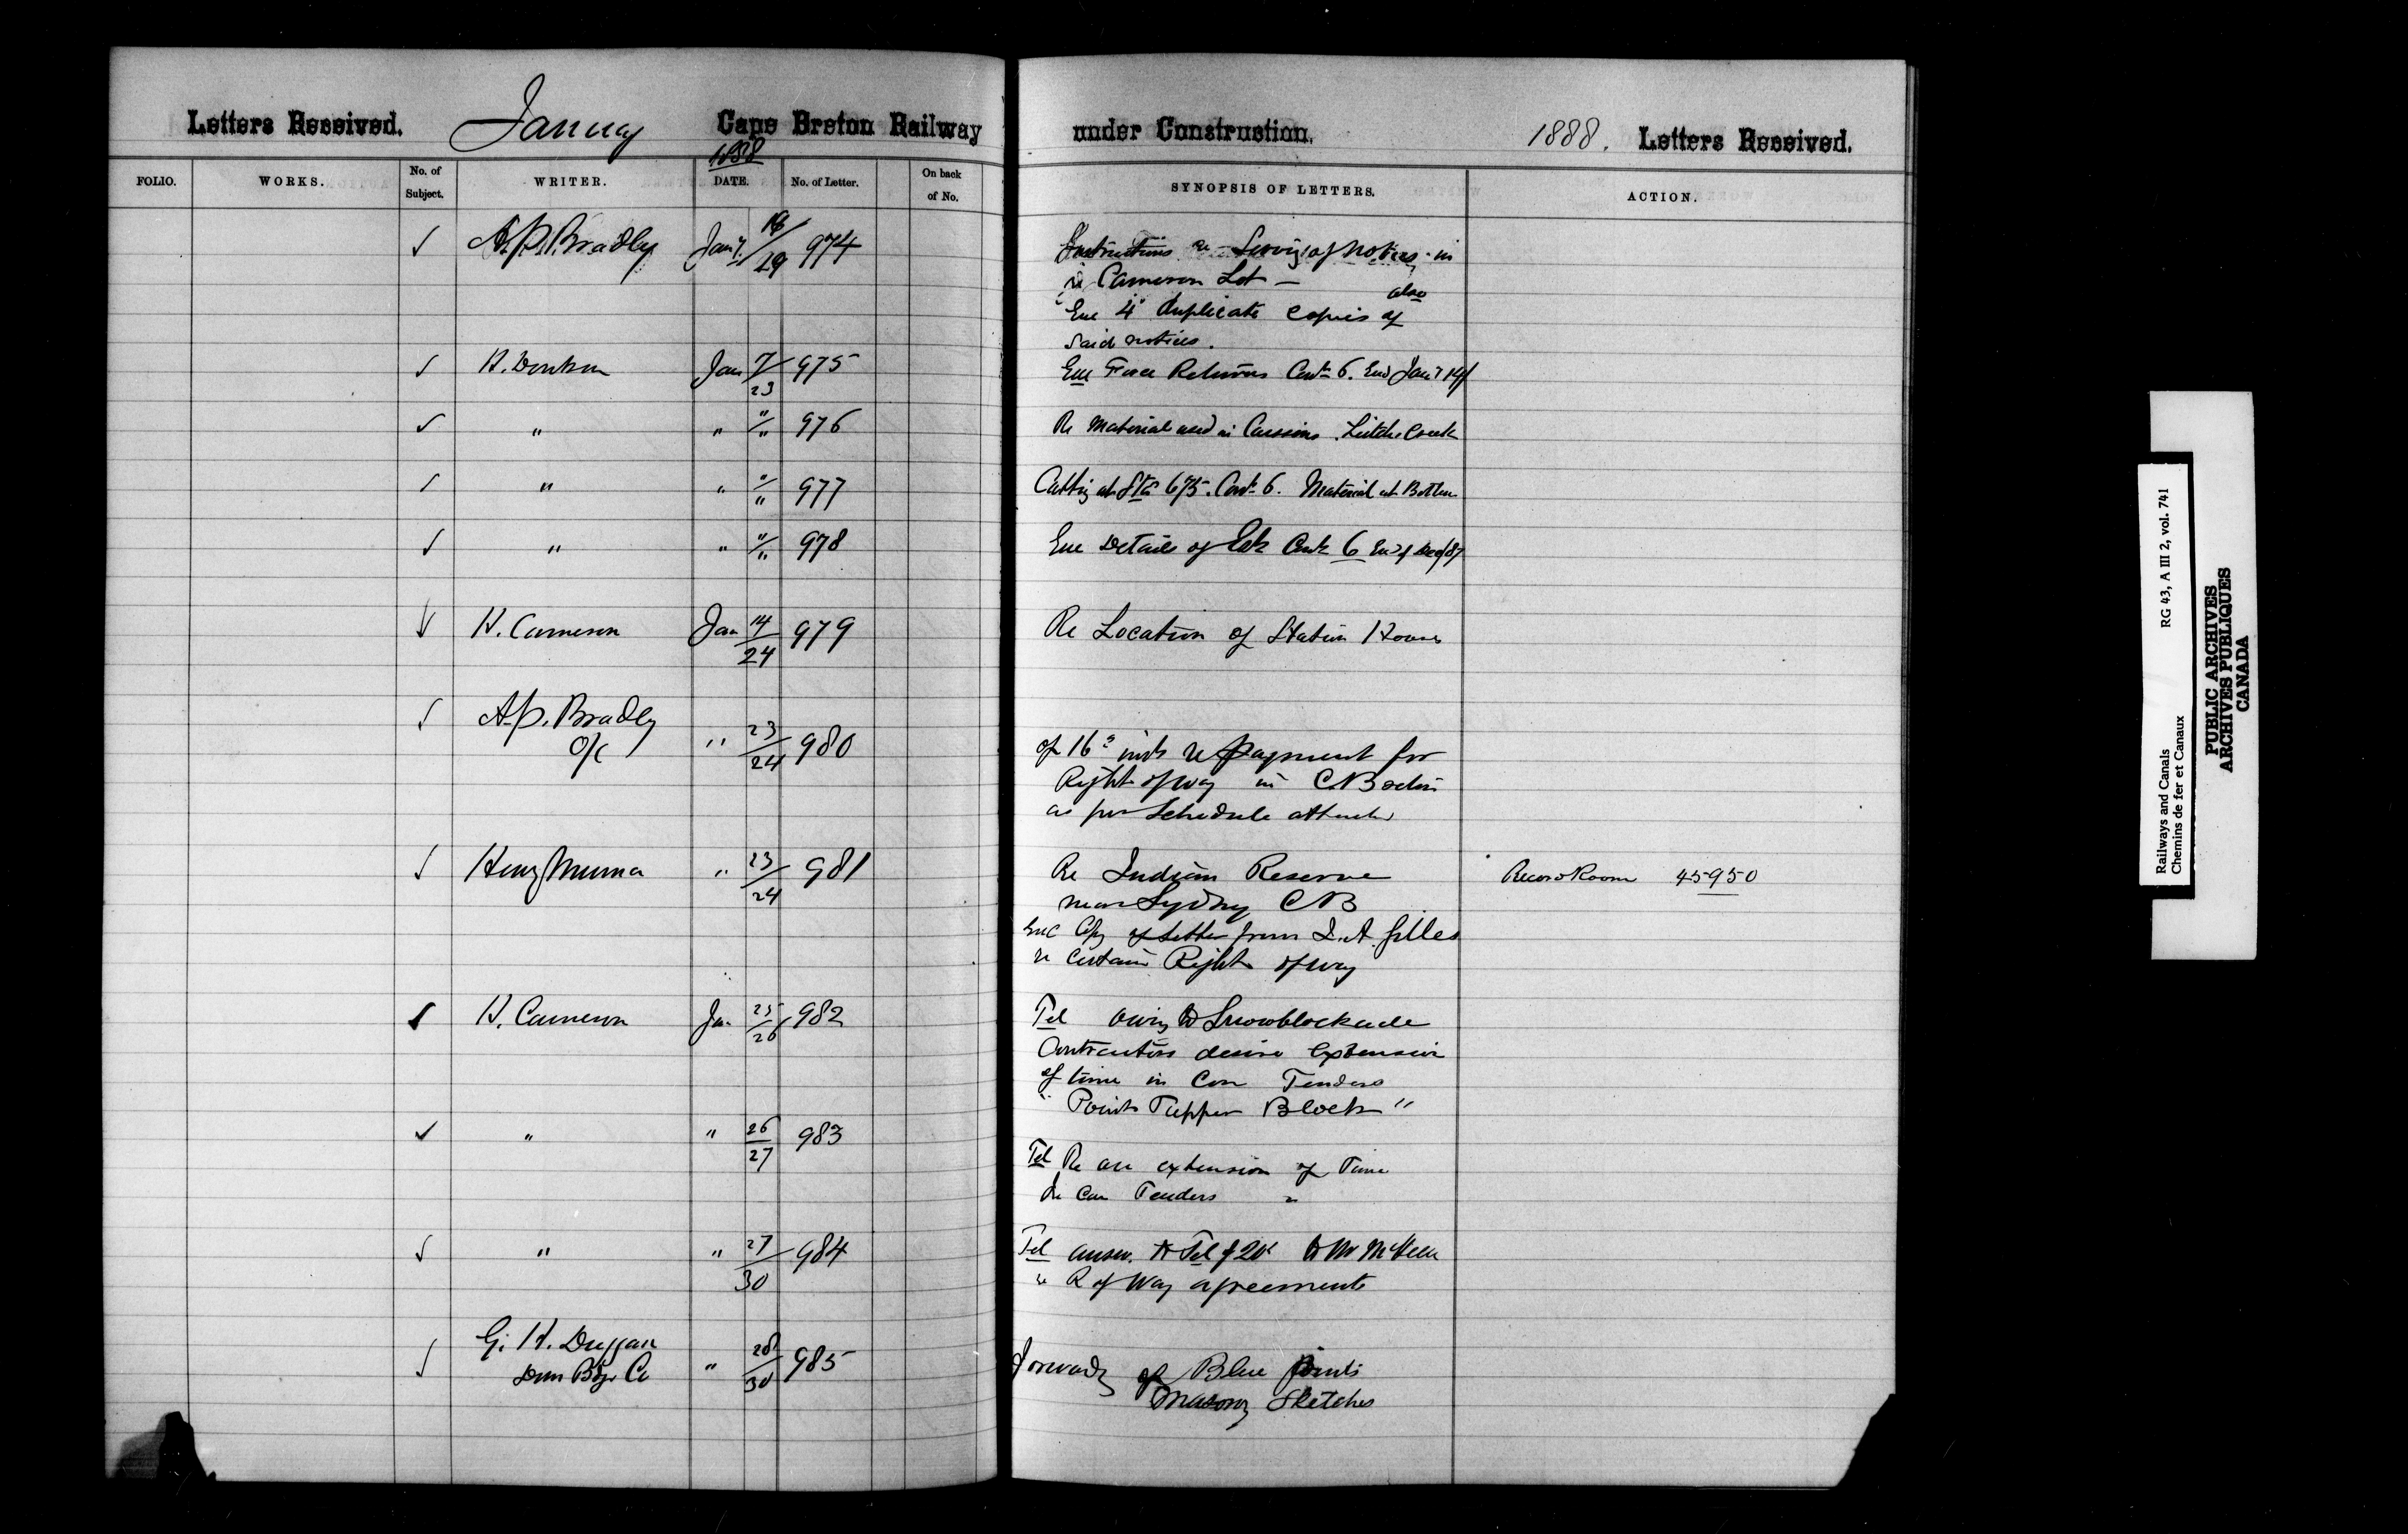 Letters Received. January Cape Breton Railway under Construction. 1888. Letters Received.
1888
FOLIO. WORKS. No. of Subject. WRITER. DATE. No. of Letter. On back of No. SYNOPSIS OF LETTERS. ACTION.
✓ A.P. Bradley Jany. 18/29 974 Instructions re Serving of Notices in
re Cameron Lot —
also
Enc 4 duplicate copies of
said notices.
✓ H. Donkin Jan 7/23 975 Enc Force Returns Cont 6. End Jany 14
✓ " " "/" 976 Re Material used in Caissons. Leitches Creek
✓ " " "/" 977 Cutting at Sta 675. Cont 6. Material at Bottom
✓ " " "/" 978 Enc Details of Est Cont 6 End of Dec/87
✓ H. Cameron Jan 14/24 979 Re Location of Station House
✓ A.P. Bradley
O/C " 23/24 980
of 16 inst re payment for
Right of way in CB
as per Schedule attached
✓ Henry " 23/24 981 Re Indian Reserve Record Room 45950
near Sydney CB
Enc Copy of letter from J.A. Gillies
re certain Right of way
✓ H. Cameron Jan 25/26 982 Tel owing to Snowblockade
Contractors desire extension
of time in Con Tenders
" Point Tupper Block "
✓ " " 26/27 983
Tel Re an extension of Time
Tenders "
✓ " " 27/30 984 Tel answ. to Tel of 20
re R of Way agreements
G. H. Duggan
✓ Dom Bdge Co " 28/30 985 Forwards of Blue Prints
Masonry Sketches
Railways and Canals RG 43, A III 2, vol. 741
Chemins de fer et Canaux
PUBLIC ARCHIVES
ARCHIVES PUBLIQUES
CANADA